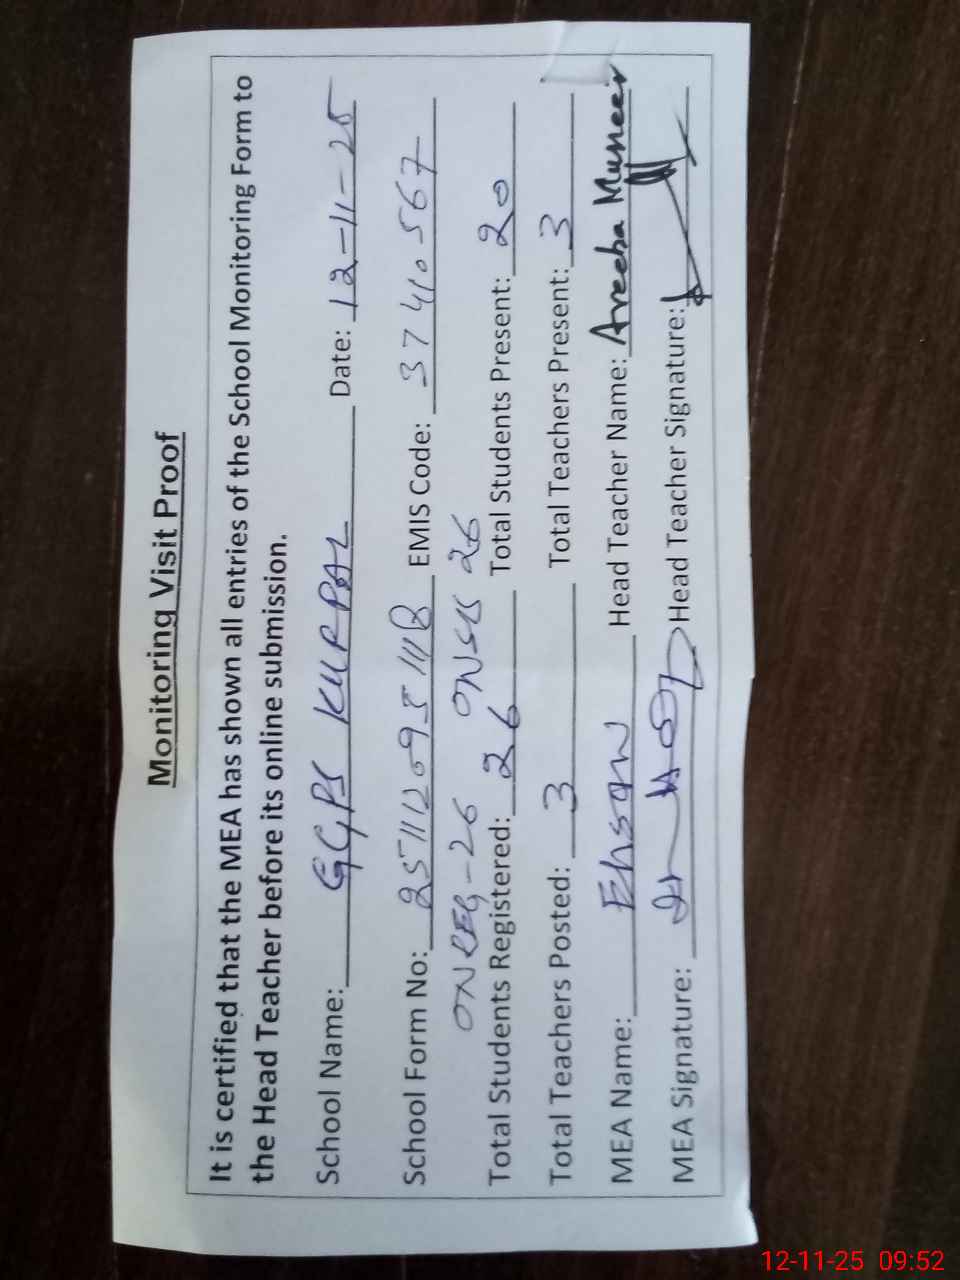 Monitoring Visit Proof
It is certified that the MEA has shown all entries of the School Monitoring Form to
the Head Teacher before its online submission.
School Name: GGPS KURPAL Date: 12-11-25
School Form No: EMIS Code: 37410567
ON REG-26 ON SIS 26
Total Students Registered: 26 Total Students Present: 20
Total Teachers Posted: 3 Total Teachers Present: 3
MEA Name: Ehsan Head Teacher Name: Areeba Muneer
MEA Signature: Head Teacher Signature:
12-11-25 09:52